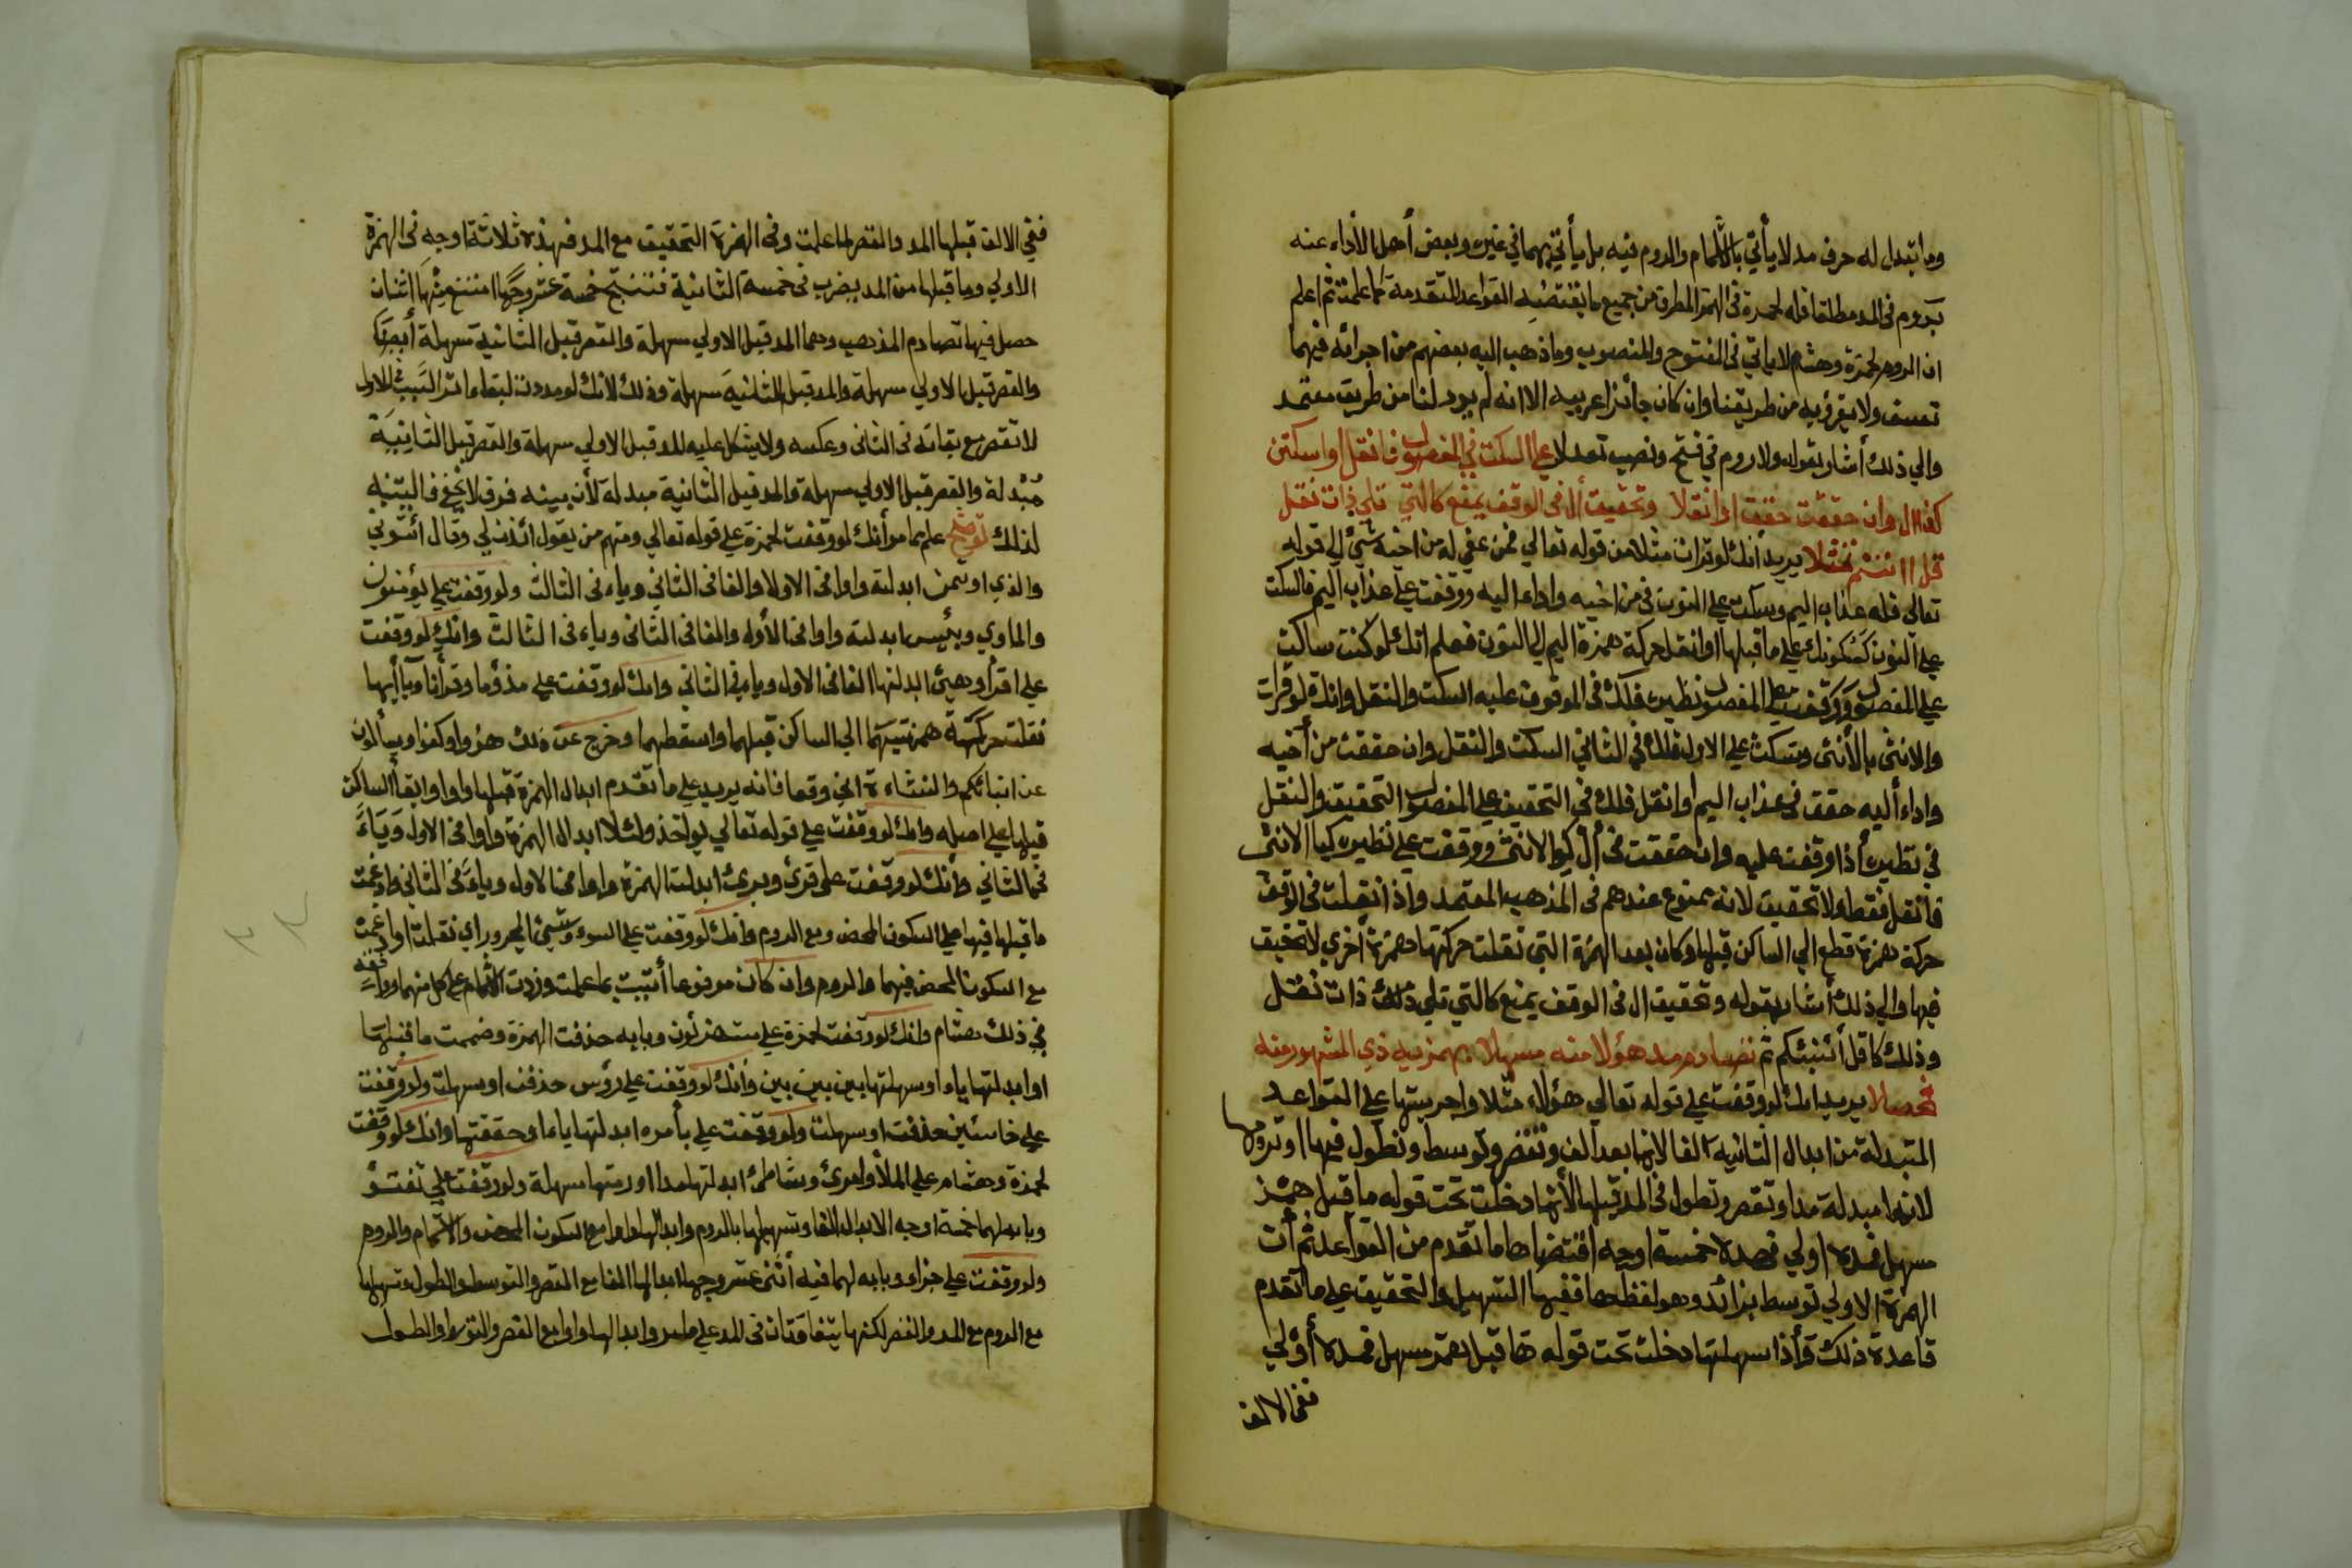 وما تبدل له حرف مد لا يأتي بالاشمام والروم فيه بل يأتي بهما في غيره وبعض أهل الأداء عنه
يروم في المد مطلقا فله لحمزة في الهمز المطرف من جميع ما يقتضيه القواعد المتقدمة كما علمت ثم اعلم
ان الروم لحمزة وهشام لا ياتي في المفتوح والمنصوب وما ذهب اليه بعضهم من اجرائه فيهما
تعسف ولا يقرؤ به من طريقنا وان كان جائزا عربيه الا انه لم يرد لنا من طريق معتمد
والي ذلك أشار بقوله ولا روم في فتح ونصب تعدلا علي السكت في المفصول فانقل او اسكتن
كفا ال وان حققت حقق او انقلا وتحقيق أل في الوقف يمنع كالتي تلي ذات نقل
قل اانتم تمثلا يريد أنك لو قرات مثلا من قوله تعالي فمن عفي له من اخيه شيء إلي قوله
تعالى فله عذاب اليم وسكت علي النون في من اخيه واداء اليه ووقفت علي عذاب اليم فالسكت
علي النون كسكونك علي ما قبلها او انقل حركة همزة اليم إلي النون فعلم انك لو كنت ساكت
علي المفصول ووقفت علي المفصول نظيره فلك في الموقوف عليه السكت والنقل وانك لو قرات
والانثى بالأنثى وسكت علي الاول فلك في الثاني السكت والنقل وان حققت من أخيه
واداء أليه حقق في عذاب اليم او انقل فلك في التحقيق علي المفصول التحقيق والنقل
في نظيره أذا وقفت عليه وان حققت في أل كوالانثى ووقفت علي نظيره كبالانثى
فانقل فقط ولا تحقيق لانه ممنوع عندهم في المذهب المعتمد واذ انقلت في الوقف
حركة همزة قطع الي الساكن قبلها وكان بعد الهمزة التي نقلت حركتها همزة أخري لا تحقيق
فيها والي ذلك أشار بقوله وتحقيق ال في الوقف يمنع كالتي تلي ذات نقل
وذلك كا قل أئنبئكم ثم تصادم مد هؤلا منه مسهلا بهمزيه ذي المشهور منه
تحصلا يريد انك لو وقفت علي قوله تعالي هؤلاء مثلا واجريتها علي القواعد
المتبدلة من ابدال الثانيه الفا لانها بعد الف وتقصر وتوسط وتطول فيها او ترومها
لانها مبدلة مدا وتقصر وتطول في المد قبلها لأنها دخلت تحت قوله ما قبل همز
مسهل فمده اولي فهذه خمسة اوجه اقتضاها ما تقدم من القواعد ثم أت
الهمزة الاولي توسط بزائد وهو لفظ ها ففيها التسهيل والتحقيق علي ما تقدم
قاعدة ذلك وأذا سهلتها دخلت تحت قوله ها قبل همز مسهل فمده أولي
ففي الالف
ففي الالف قبلها المد والقصر لما علمت وفي الهمزة التحقيق مع المد فهذه ثلاثة اوجه في الهمزة
الاولي وما قبلها من المد يضرب في خمسة الثانية فتنتج خمسة عشر وجها امتنع منها اثنان
حصل فيها تصادم المذهب وهما المد قبل الاولي سهلة والقصر قبل الثانية سهلة أيضا
والقصر قبل الاولي سهلة والمد قبل الثانية سهلة وذلك لانك لو مددت لبقاء اثر السبب في الاول
لا تقصر مع بقائه في الثاني وعكسه ولا يشكل عليه المد قبل الاولي سهلة والقصر قبل الثانية
مبدلة والقصر قبل الاولي سهلة والمد قبل الثانية مبدلة لأن بينه فرق لا يخفي البتنيه
لذلك توضيح علم مما مر أنك لو وقفت لحمزة علي قوله تعالي ومنهم من يقول ائذن لي وقال أئتوني
والذي اوتمن ابدلته واوا في الاول والفا في الثاني وياء في الثالث ولو وقفت علي يؤمنون
والماوي وبئس ابدلته واوا في الأوله والفا في الثاني وياء في الثالث وانك لو وقفت
علي اقرأ وهيئ ابدلتها الفا في الاول وياء في الثاني وانك لو وقفت علي مذؤما وقرأنا ويا أيها
نقلت حركته همزتيهما الي الساكن قبلهما واسقطهما وخرج عن ذلك هزؤا وكفوا ويسألون
عن انبائكم والنشاءة اني وقعا فانه يريد علي ما تقدم ابدال الهمزة قبلها واوا وابقا الساكن
قبلها علي اصله وانك لو وقفت علي قوله تعالي يؤاخذ ولئلا ابدال الهمزة واوا في الاول وياء
في الثاني وأنك لو وقفت علي قروء وبريء ابدلت الهمزة واوا في الاول وياء في الثاني وادغمت
ما قبلها فيها علي السكون المحض ومع الروم وانك لو وقفت علي السوء وشيء المجرور اي نقلت او ادغمت
مع السكون المحض فيهما والروم وان كان مرفوعا أتيت بما علمت وزدت الاشمام علي كل منهما ووافقه
في ذلك هشام وانك لو وقفت لحمزة علي مستهزئون وبابه حذفت الهمزة وضممت ما قبلها
او ابدلتها ياء او سهلتها بين بين بين وأنك لو وقفت علي رؤس حذفت او سهلت ولو وقفت
علي خاسئين حذفت او سهلت ولو وقفت علي بأمره ابدلتها ياء او حققتها وانك لو وقفت
لحمزة وهشام علي الملأ ولؤلؤ وشاطئ ابدلتها مدا او رمتها سهلة ولو وقفت علي تفتؤ
وبابه لهما خمسة اوجه الابدال الفا وتسهيلها بالروم وابدالها واوا مع السكون المحض والاشمام والروم
ولو وقفت علي جزاء وبابه لهما فيه أثني عشر وجها ابدالها الفا مع القصر والتوسط والطول وتسهيلها
مع الروم مع المد والقصر لكنهما يتفاوتان في المد علي ما مر وابدالها واوا مع القصر والتوسط والطول